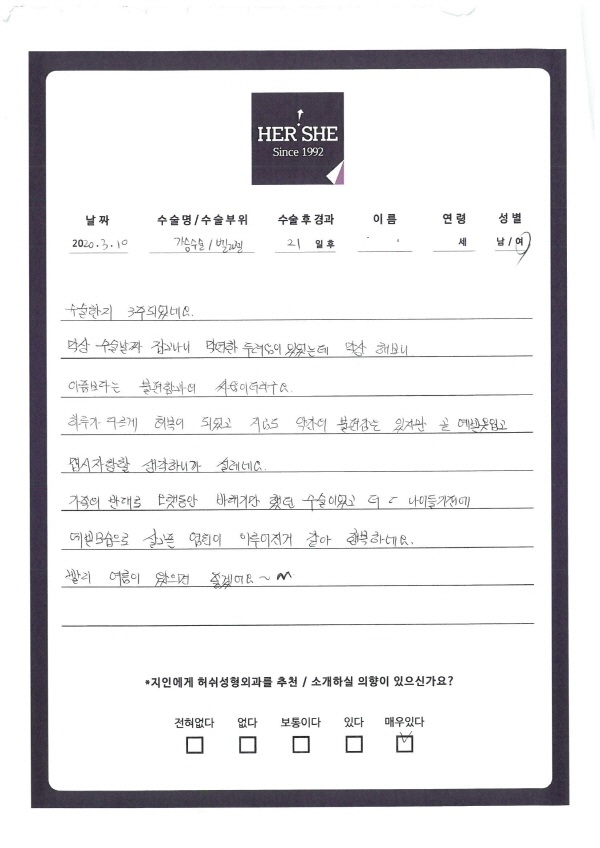 HER SHE
Since 1992
날 짜 수술명/수술부위 수술 후 경과 이 름 연 령 성 별
2020.3.10 가슴수술/벨라젤 21 일 후 세 남/여
수술한지 3주되었네요.
막상 수술날짜 잡고나니 막연한 두려움이 있었는데 막상 해보니
아픔보다는 불편함과의 싸움이더라구요.
하루가 다르게 회복이 되었고 지금도 약간의 불편감은 있지만 곧 예쁜옷입고
접시자랑할 생각하니까 설레네요.
가족의 반대로 오랫동안 바래기만 했던 수술이었고 더 나이들기전에
예쁜모습으로 살고픈 염원이 이루어진거 같아 행복하네요.
빨리 여름이 왔으면 좋겠어요~
*지인에게 허쉬성형외과를 추천 / 소개하실 의향이 있으신가요?
전혀없다 없다 보통이다 있다 매우있다